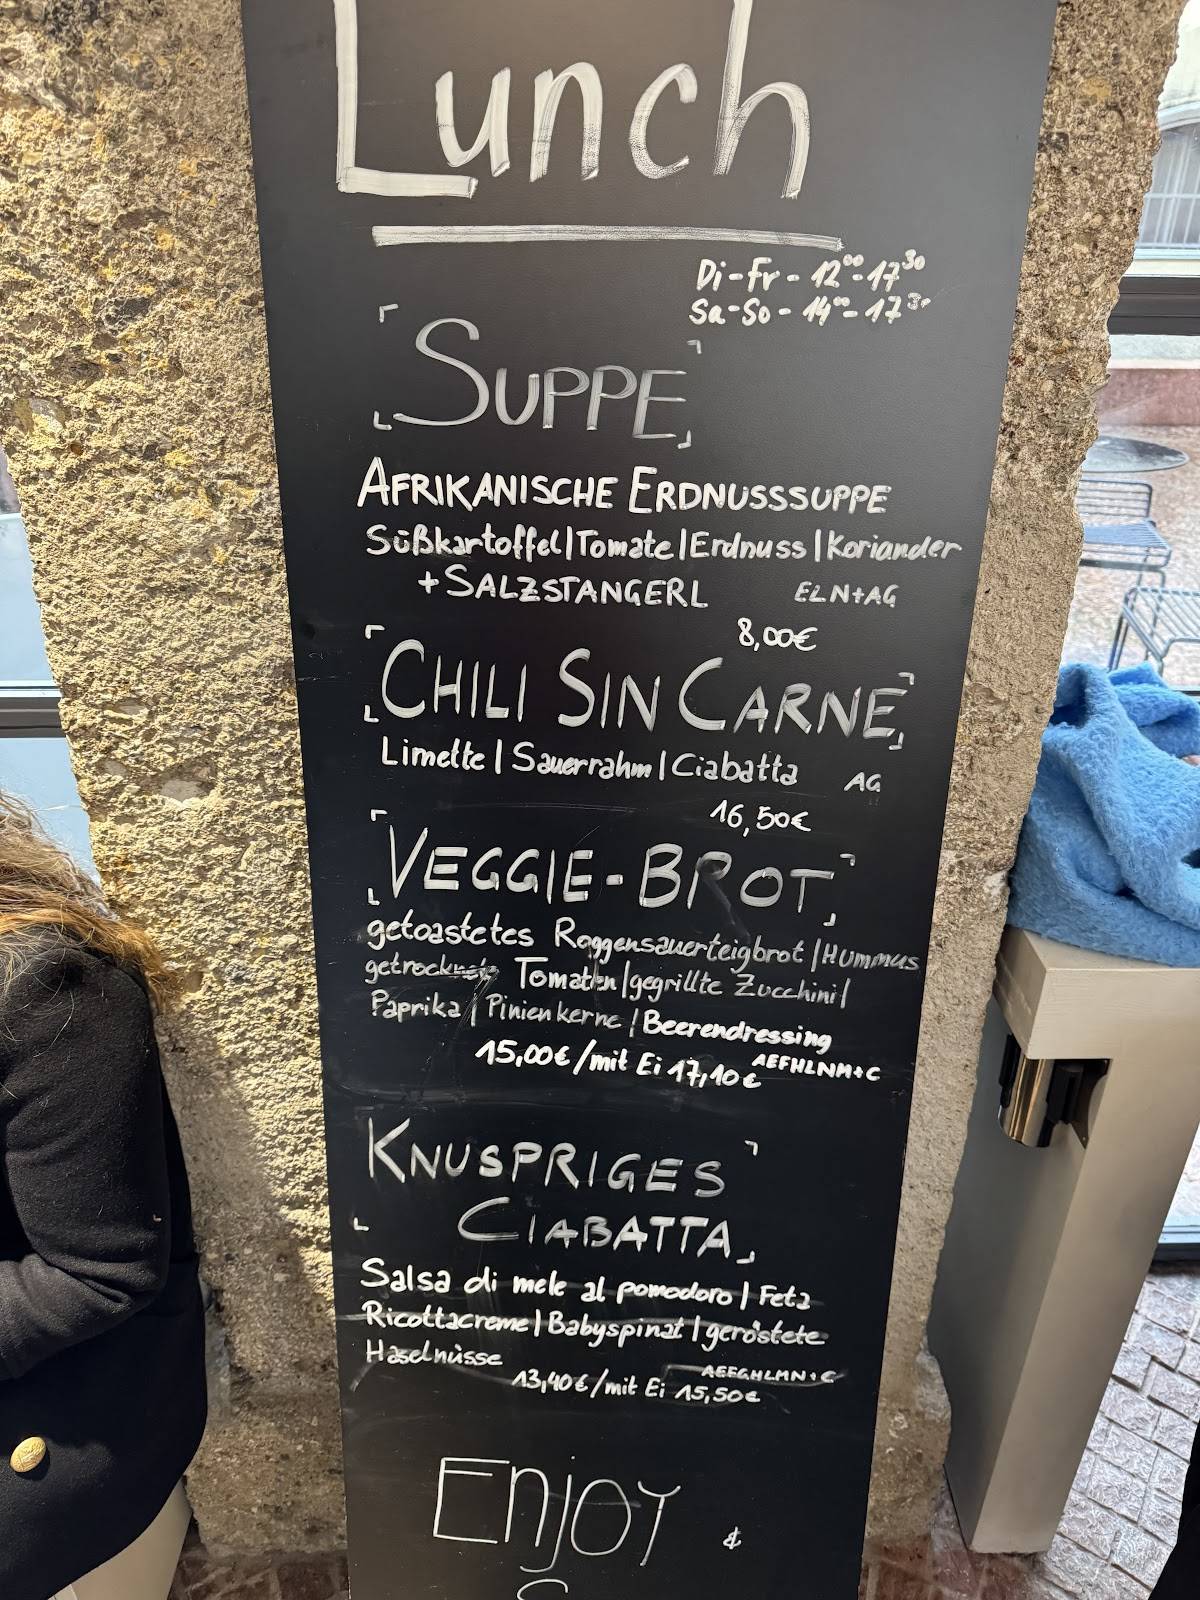 Lunch
Di-Fr - 12⁰⁰-17³⁰
Sa-So - 14⁰⁰-17³⁰
SUPPE
AFRIKANISCHE ERDNUSSSUPPE
Süßkartoffel|Tomate|Erdnuss|Koriander
+SALZSTANGERL ELN+AG
8,00€
CHILI SIN CARNE
Limette|Sauerrahm|Ciabatta AG
16,50€
VEGGIE-BROT
getoastetes Roggensauerteigbrot|Hummus
getrocknete Tomaten|gegrillte Zucchini|
Paprika|Pinienkerne|Beerendressing
15,00€/mit Ei 17,10€ AEFHLNM+C
KNUSPRIGES
CIABATTA
Salsa di mele al pomodoro|Feta
Ricottacreme|Babyspinat|geröstete
Haselnüsse AEFGHLMN+C
13,40€/mit Ei 15,50€
ENJOY &